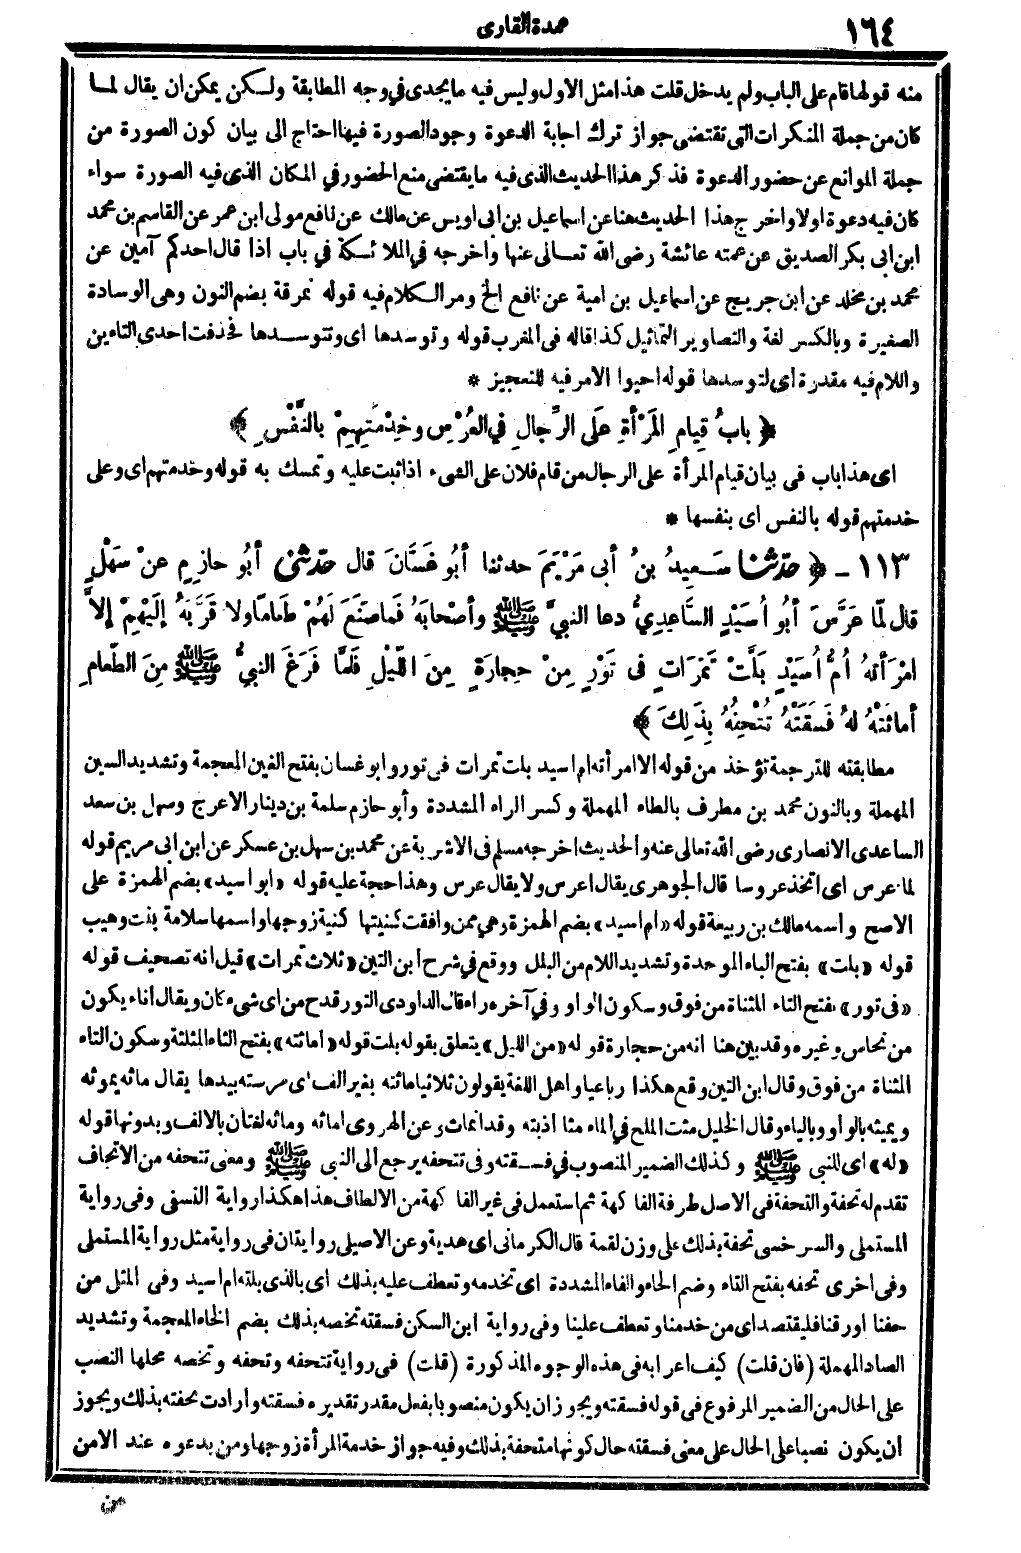 ١٦٤
عمدة القارى
منه قولها قام على الباب ولم يدخل قلت هذا مثل الاول وليس فيه ما يجدى في وجه المطابقة ولكن يمكن ان يقال لما
كان من جملة المنكرات التى تقتضى جواز ترك اجابة الدعوة وجود الصورة فيها احتاج الى بيان كون الصورة من
جملة الموانع عن حضور الدعوة فذكر هذا الحديث الذى فيه ما يقتضى منع الحضور في المكان الذى فيه الصورة سواء
كان فيه دعوة اولا واخرج هذا الحديث هنا عن اسماعيل بن ابى اويس عن مالك عن نافع مولى ابن عمر عن القاسم بن محمد
ابن ابى بكر الصديق عن عمته عائشة رضى الله تعالى عنها واخرجه في الملائكة في باب اذا قال احدكم آمين عن
محمد بن مخلد عن ابن جريج عن اسماعيل بن امية عن نافع الخ ومر الكلام فيه قوله نمرقة بضم النون وهى الوسادة
الصغيرة وبالكسر لغة والتصاوير التماثيل كذا قاله فى المغرب قوله وتوسدها اى وتتوسدها فحذفت احدى التاءين
واللام فيه مقدرة أى لتوسدها قوله احيوا الامر فيه للتعجيز *
﴿ بابُ قِيامِ المَرْأةِ عَلَى الرِّجالِ في العُرْسِ وخِدْمَتِهِمْ بالنَّفْسِ ﴾
اى هذا باب فى بيان قيام المرأة على الرجال من قام فلان على الشىء اذا ثبت عليه وتمسك به قوله وخدمتهم اى وعلى
خدمتهم قوله بالنفس اى بنفسها *
١١٣ - ﴿ حدّثنا سَعِيدُ بنُ أبى مَرْيَمَ حدثنا أبُو غَسَّانَ قال حدّثنى أبُو حازِمٍ عنْ سَهْلٍ
قال لمّا عَرَّسَ أبُو أُسَيْدٍ السَّاعِدِيُّ دعا النبيَّ ﷺ وأصْحابَهُ فَما صَنَعَ لَهُمْ طَعامًا ولا قَرَّبَهُ إلَيْهِمْ إلاَّ
امْرَأتُهُ أُمُّ أُسَيْدٍ بَلَّتْ تَمَرَاتٍ فى تَوْرٍ مِنْ حِجارَةٍ مِنَ اللَّيْلِ فَلمَّا فَرَغَ النبيُّ ﷺ مِنَ الطّعامِ
أماثَتْهُ لهُ فَسَقَتْهُ تُتْحِفُهُ بِذَلِكَ ﴾
مطابقته للترجمة تؤخذ من قوله الا امرأته ام اسيد بلت تمرات فى تور وابو غسان بفتح الغين المعجمة وتشديد السين
المهملة وبالنون محمد بن مطرف بالطاء المهملة وكسر الراء المشددة وأبو حازم سلمة بن دينار الاعرج وسهل بن سعد
الساعدى الانصارى رضى الله تعالى عنه والحديث اخرجه مسلم فى الاشربة عن محمد بن سهل بن عسكر عن ابن ابى مريم قوله
لما عرس اى اتخذ عروسا قال الجوهرى يقال اعرس ولا يقال عرس وهذا حجة عليه قوله «ابو اسيد» بضم الهمزة على
الاصح واسمه مالك بن ربيعة قوله «ام اسيد» بضم الهمزة وهي ممن وافقت كنيتها كنية زوجها واسمها سلامة بنت وهيب
قوله «بلت» بفتح الباء الموحدة وتشديد اللام من البلل ووقع في شرح ابن التين «ثلاث تمرات» قيل انه تصحيف قوله
«فى تور» بفتح التاء المثناة من فوق وسكون الواو وفي آخره راء قال الداودى التور قدح من اى شىء كان ويقال اناء يكون
من نحاس وغيره وقد بين هنا انه من حجارة قوله «من الليل» يتعلق بقوله بلت قوله «اماثته» بفتح الثاء المثلثة وسكون التاء
المثناة من فوق وقال ابن التين وقع هكذا رباعيا واهل اللغة يقولون ثلاثيا ماثته بغير الف اى مرسته بيدها يقال ماثه يموثه
ويميثه بالواو وبالياء وقال الخليل مثت الملح في الماء مثا اذبته وقد انماث وعن الهروى اماثه وماثه لغتان بالالف وبدونها قوله
«له» اى للنبى ﷺ وكذلك الضمير المنصوب في فسقته وفى تتحفه يرجع الى النبى ﷺ ومعنى تتحفه من الاتحاف
تقدم له تحفة والتحفة فى الاصل طرفة الفاكهة ثم استعمل فى غير الفاكهة من الالطاف هذا هكذا رواية النسفى وفى رواية
المستملى والسرخسى تحفة بذلك على وزن لقمة قال الكرمانى اى هدية وعن الاصيلى روايتان فى رواية مثل رواية المستملى
وفى اخرى تحفه بفتح التاء وضم الحاء والفاء المشددة اى تخدمه وتعطف عليه بذلك اى بالذى بلته ام اسيد وفى المثل من
حفنا او رفنا فليقتصد اى من خدمنا وتعطف علينا وفى رواية ابن السكن فسقته تخصه بذلك بضم الخاء المعجمة وتشديد
الصاد المهملة (فان قلت) كيف اعرابه فى هذه الوجوه المذكورة (قلت) فى رواية تتحفه وتحفه وتخصه محلها النصب
على الحال من الضمير المرفوع فى قوله فسقته ويجوز ان يكون منصوبا بفعل مقدر تقديره فسقته وأرادت تحفته بذلك ويجوز
أن يكون نصبا على الحال على معنى فسقته حال كونها متحفة بذلك وفيه جواز خدمة المرأة زوجها ومن يدعوه عند الامن
من